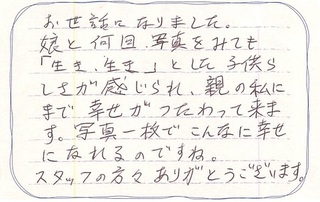 お世話になりました。
娘と何回、写真をみても
「生き、生き」とした子供ら
しさが感じられ、親の私に
まで幸せがつたわって来ま
す。写真一枚でこんなに幸せ
になれるのですね。
スタッフの方々ありがとうございます。